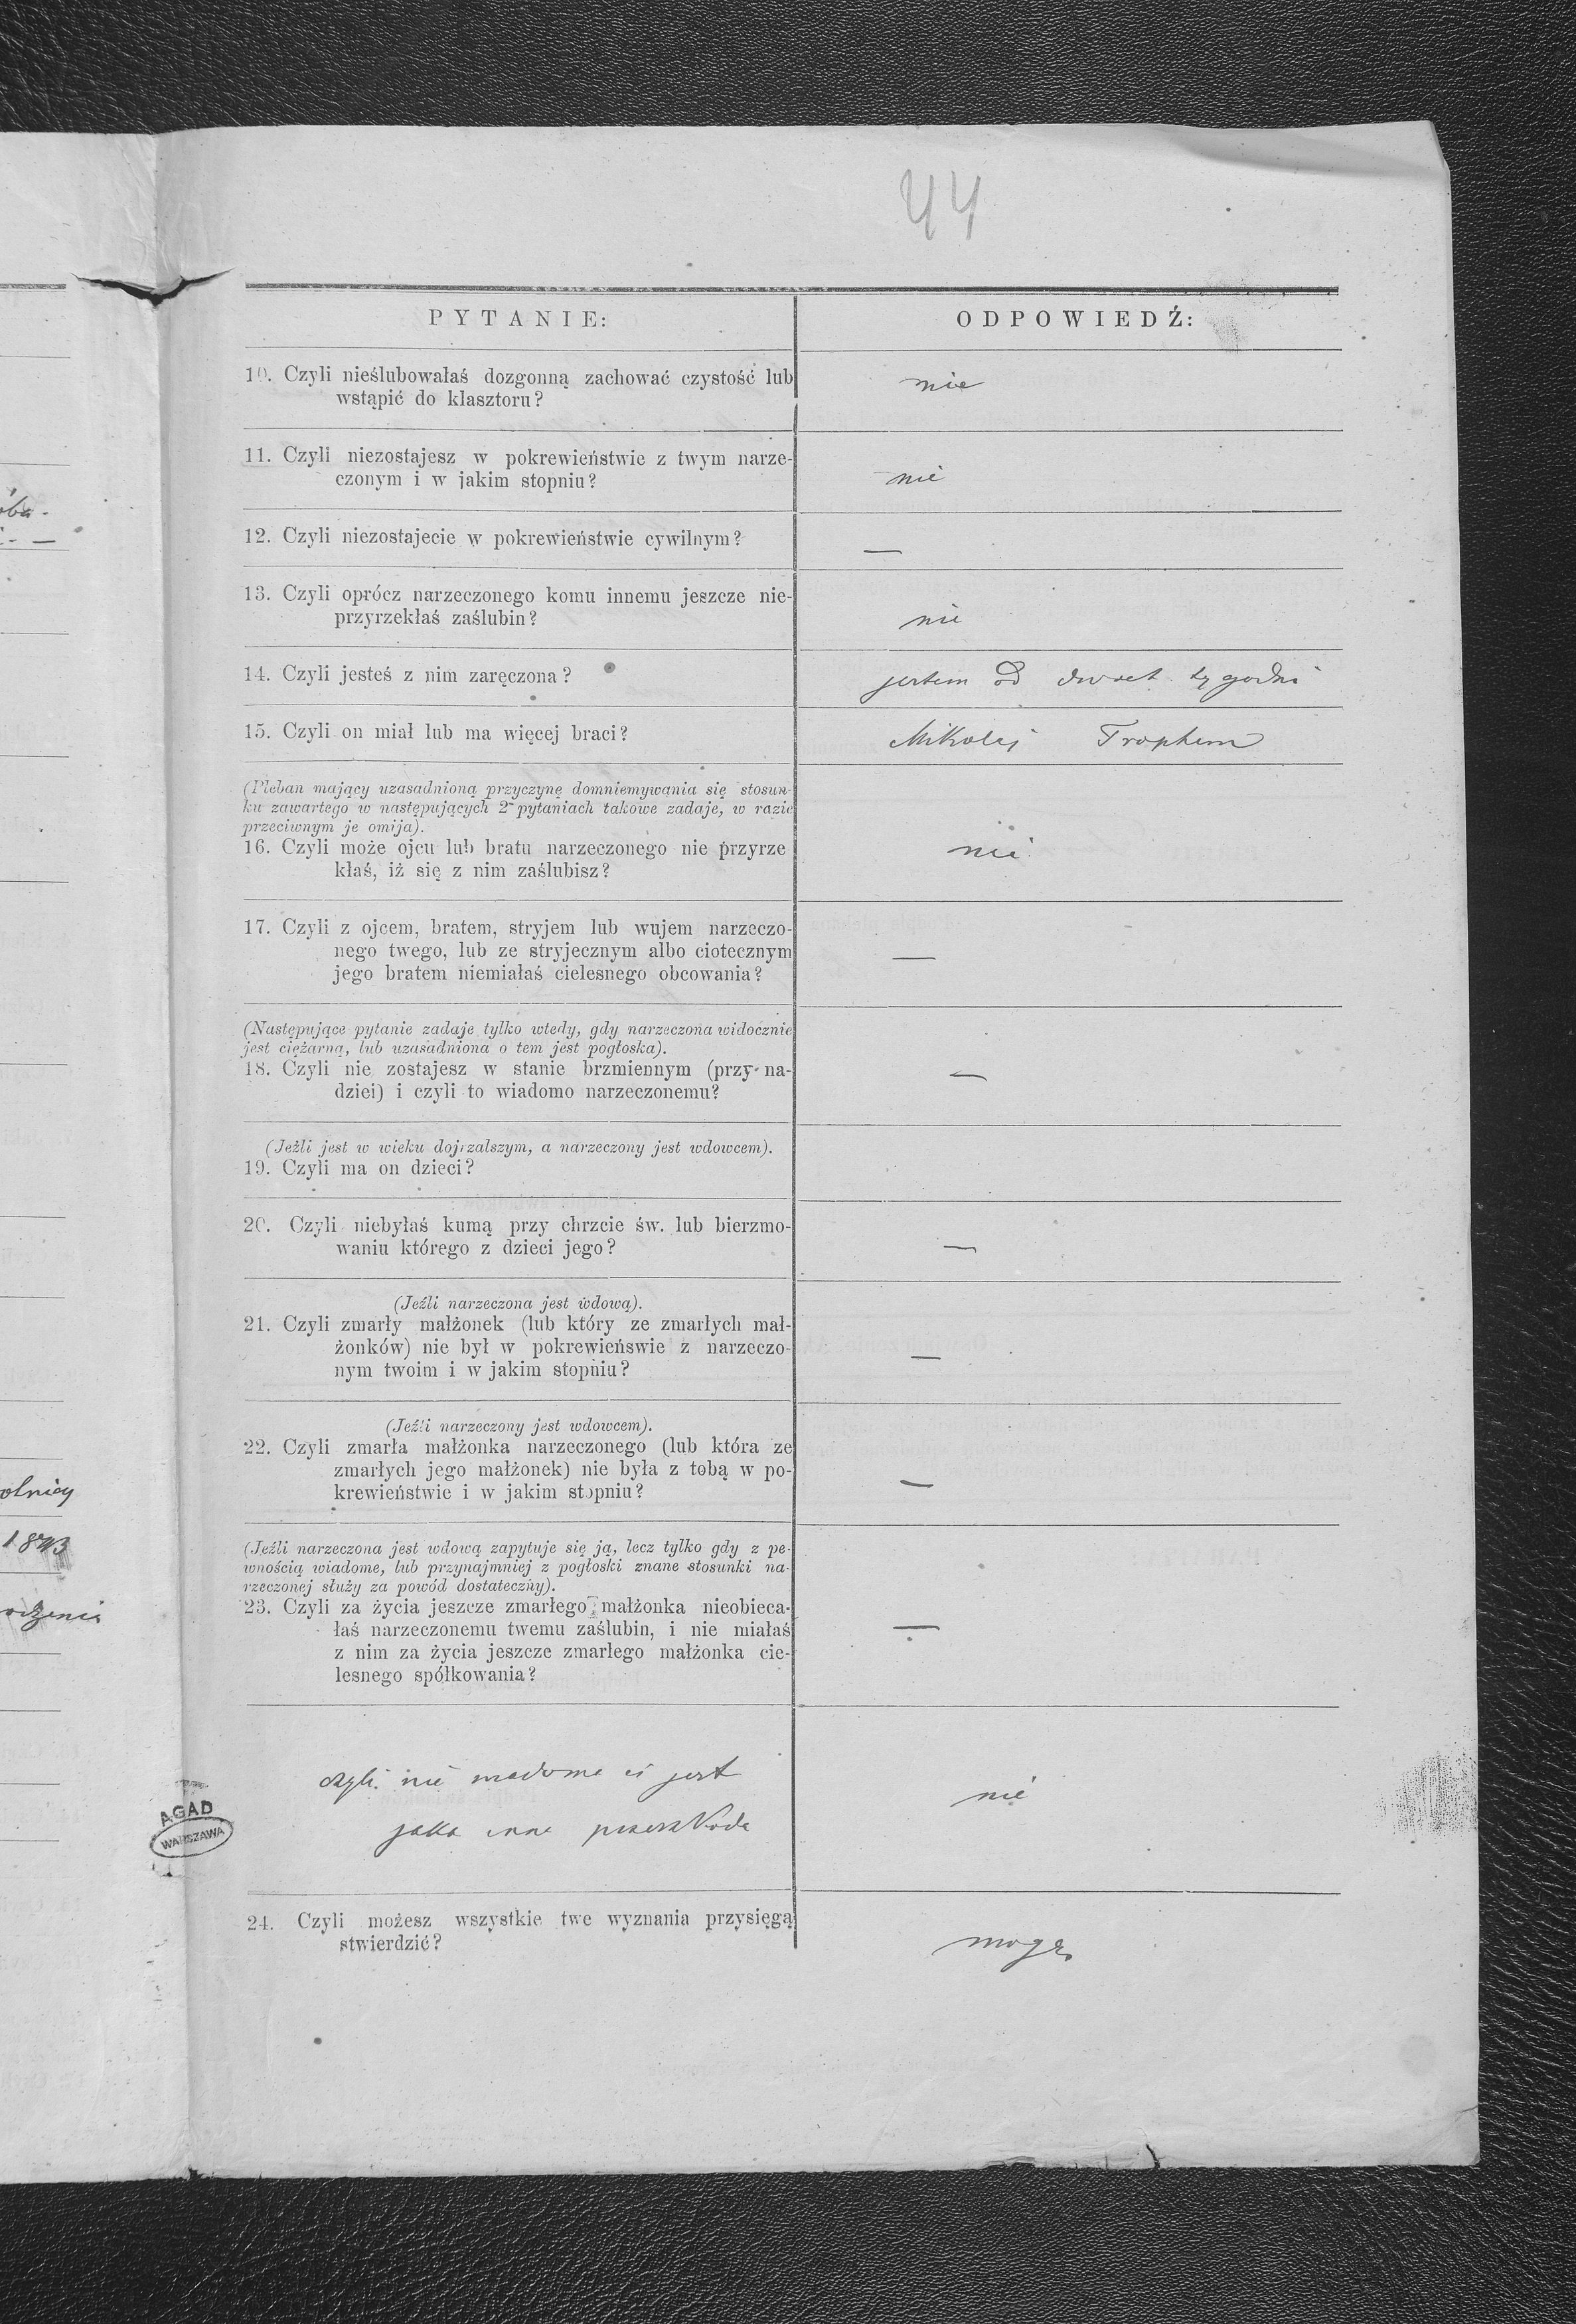 44
PYTANIE:
ODPOWIEDŹ:
10. Czyli nieślubowałaś dozgonną zachować czystość lub
wstąpić do klasztoru?
nie
11. Czyli niezostajesz w pokrewieństwie z twym narze-
czonym i w jakim stopniu?
nie
12. Czyli niezostajecie w pokrewieństwie cywilnym?
—
13. Czyli oprócz narzeczonego komu innemu jeszcze nie-
przyrzekłaś zaślubin?
nie
14. Czyli jesteś z nim zaręczona?
jestem od dwoch tygodni
15. Czyli on miał lub ma więcej braci?
Mikolaj Trophem
(Pleban mający uzasadnioną przyczynę domniemywania się stosun-
ku zawartego w następujących 2 pytaniach takowe zadaje, w razie
przeciwnym je omija).
16. Czyli może ojcu lub bratu narzeczonego nie przyrze
kłaś, iż się z nim zaślubisz?
nie
17. Czyli z ojcem, bratem, stryjem lub wujem narzeczo-
nego twego, lub ze stryjecznym albo ciotecznym
jego bratem niemiałaś cielesnego obcowania?
—
(Następujące pytanie zadaje tylko wtedy, gdy narzeczona widocznie
jest ciężarną, lub uzasadniona o tem jest pogłoska).
18. Czyli nie zostajesz w stanie brzmiennym (przy na-
dziei) i czyli to wiadomo narzeczonemu?
—
(Jeźli jest w wieku dojrzalszym, a narzeczony jest wdowcem).
19. Czyli ma on dzieci?
20. Czyli niebyłaś kumą przy chrzcie św. lub bierzmo-
waniu którego z dzieci jego?
—
(Jeźli narzeczona jest wdową).
21. Czyli zmarły małżonek (lub który ze zmarłych mał-
żonków) nie był w pokrewieńswie z narzeczo-
nym twoim i w jakim stopniu?
—
(Jeźli narzeczony jest wdowcem).
22. Czyli zmarła małżonka narzeczonego (lub która ze
zmarłych jego małżonek) nie była z tobą w po-
krewieństwie i w jakim stopniu?
—
(Jeźli narzeczona jest wdową zapytuje się ją, lecz tylko gdy z pe-
wnością wiadome, lub przynajmniej z pogłoski znane stosunki na-
rzeczonej służy za powód dostateczny).
23. Czyli za życia jeszcze zmarłego małżonka nieobieca-
łaś narzeczonemu twemu zaślubin, i nie miałaś
z nim za życia jeszcze zmarłego małżonka cie-
lesnego spółkowania?
—
czyli nie wiadoma ci jest
jaka inna przeszkoda
nie
24. Czyli możesz wszystkie twe wyznania przysięgą
stwierdzić?
mogę
AGAD
WARSZAWA